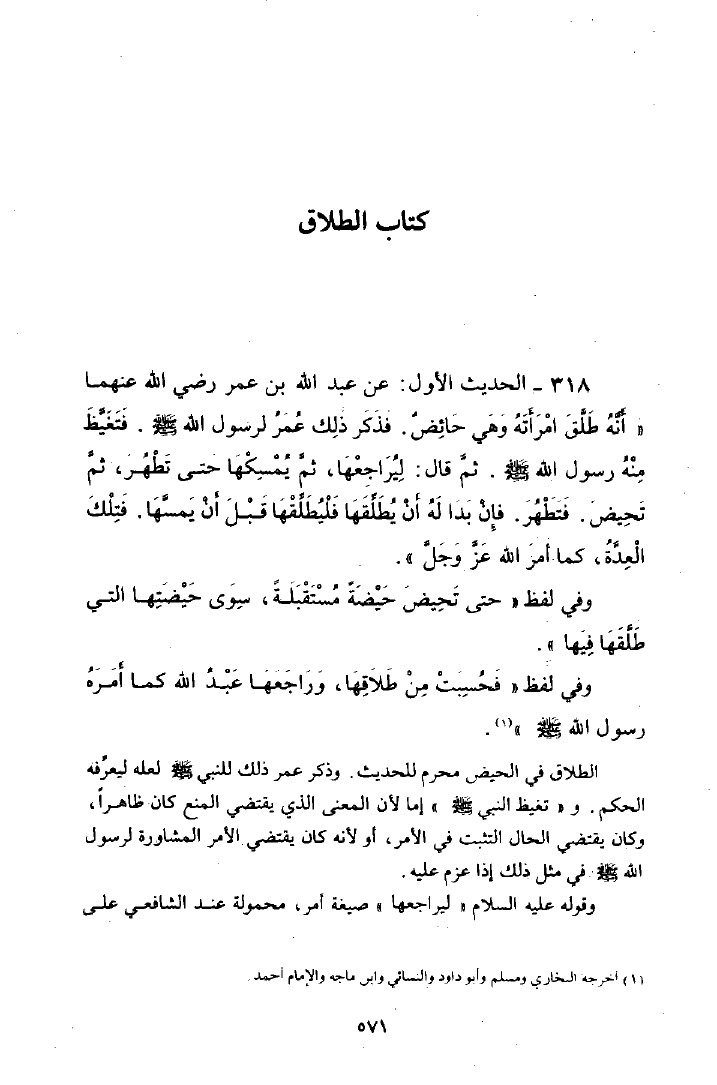 كتاب الطلاق
٣١٨ ـ الحديث الأول: عن عبد الله بن عمر رضي الله عنهما
« أَنَّهُ طَلَّقَ امْرَأَتَهُ وَهِي حَائِضٌ. فَذَكَر ذلِك عُمَرُ لرسول الله ﷺ . فَتَغَيَّظَ
مِنْهُ رسول الله ﷺ . ثمَّ قال: لِيُرَاجِعْهَا، ثمَّ يُمْسِكْهَا حتى تَطْهُرَ، ثمَّ
تَحِيضَ. فَتَطْهُرَ. فإنْ بَدَا لَهُ أنْ يُطَلِّقَهَا فَلْيُطَلِّقْهَا قَبْلَ أنْ يَمسَّهَا. فَتِلْكَ
الْعِدَّةُ، كما أمرَ الله عَزَّ وَجَلَّ ».
وفي لفظ « حتى تَحِيضَ حَيْضَةً مُسْتَقْبَلَةً، سِوَى حَيْضَتِها التي
طَلَّقَهَا فِيهَا ».
وفي لفظ « فَحُسِبَتْ مِنْ طَلاَقِهَا، وَرَاجَعَهَا عَبْدُ الله كما أَمَرَهُ
رسول الله ﷺ »(١).
الطلاق في الحيض محرم للحديث. وذكر عمر ذلك للنبي ﷺ لعله ليعرِّفه
الحكم. و « تغيظ النبي ﷺ » إما لأن المعنى الذي يقتضي المنع كان ظاهراً،
وكان يقتضي الحال التثبت في الأمر، أو لأنه كان يقتضي الأمر المشاورة لرسول
الله ﷺ في مثل ذلك إذا عزم عليه.
وقوله عليه السلام « ليراجعها » صيغة أمر، محمولة عند الشافعي على
(١) أخرجه البخاري ومسلم وأبو داود والنسائي وابن ماجه والإمام أحمد.
٥٧١